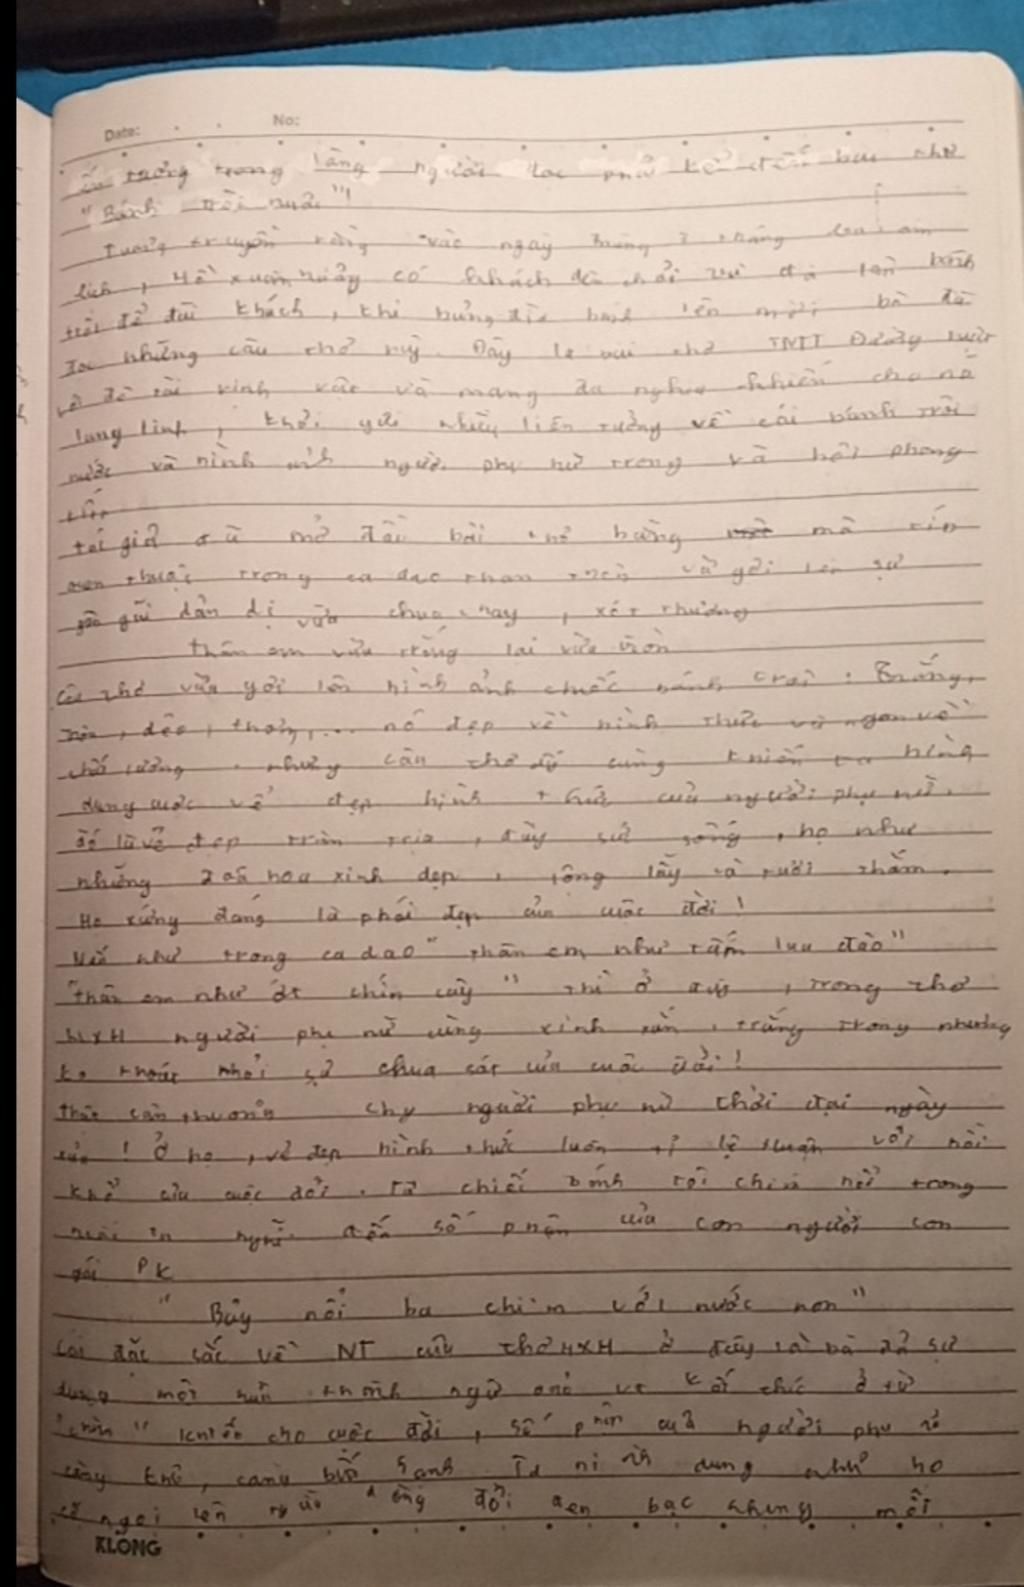 Date: No:
trong lòng người đọc phải kể đến bài thơ
"Bánh trôi nước"!
truyền rằng vào ngày mùng 3 tháng ba âm
lịch, Hồ Xuân có khách đến chơi
để đãi khách, khi bưng đĩa bánh lên mời bà đã
đọc những câu thơ này. Đây là bài thơ TNTT Đường luật
và mang đa nghĩa khiến cho nó
lung linh, khơi gợi nhiều liên tưởng về cái bánh trôi
nước và hình ảnh người phụ nữ trong xã hội phong
tác giả đã mở đầu bài thơ bằng mô típ
quen thuộc trong ca dao than thân và gợi lên sự
gần gũi dân dị vừa chua cay, xót thương
thân em vừa trắng lại vừa tròn
Câu thơ vừa gợi lên hình ảnh chiếc bánh trôi: Trắng,
dẻo, thơm,... nó đẹp về hình thức và ngon về
chất lượng. nhưng câu thơ ấy cũng khiến ta hình
dung được vẻ đẹp hình thức của người phụ nữ.
đó là vẻ đẹp tràn trề, đầy sức sống, họ như
những hoa xinh đẹp, lộng lẫy và tươi thắm.
Họ xứng đáng là phái đẹp của cuộc đời!
Nếu như trong ca dao "thân em như tấm lụa đào"
"thân em như ớt chín cây" thì ở đây, trong thơ
HXH người phụ nữ cũng xinh xắn, trắng trong nhưng
ko thoát khỏi sự chua xót của cuộc đời!
thật cảm thương cho người phụ nữ thời đại ngày
xưa! Ở họ, vẻ đẹp hình thức luôn tỉ lệ thuận với nỗi
khổ của cuộc đời. Từ chiếc bánh trôi chìm nổi trong
nước ta nghĩ đến số phận của con người con
gái PK
"Bảy nổi ba chìm với nước non"
Cái đặc sắc về NT của thơ HXH ở đây là bà đã sử
dụng một thành ngữ và kết thúc ở từ
"chìm" khiến cho cuộc đời, số phận của người phụ nữ
càng khổ, càng bấp bênh. Ta hình dung như họ
cố ngoi lên dòng đời đen bạc nhưng mỗi
KLONG